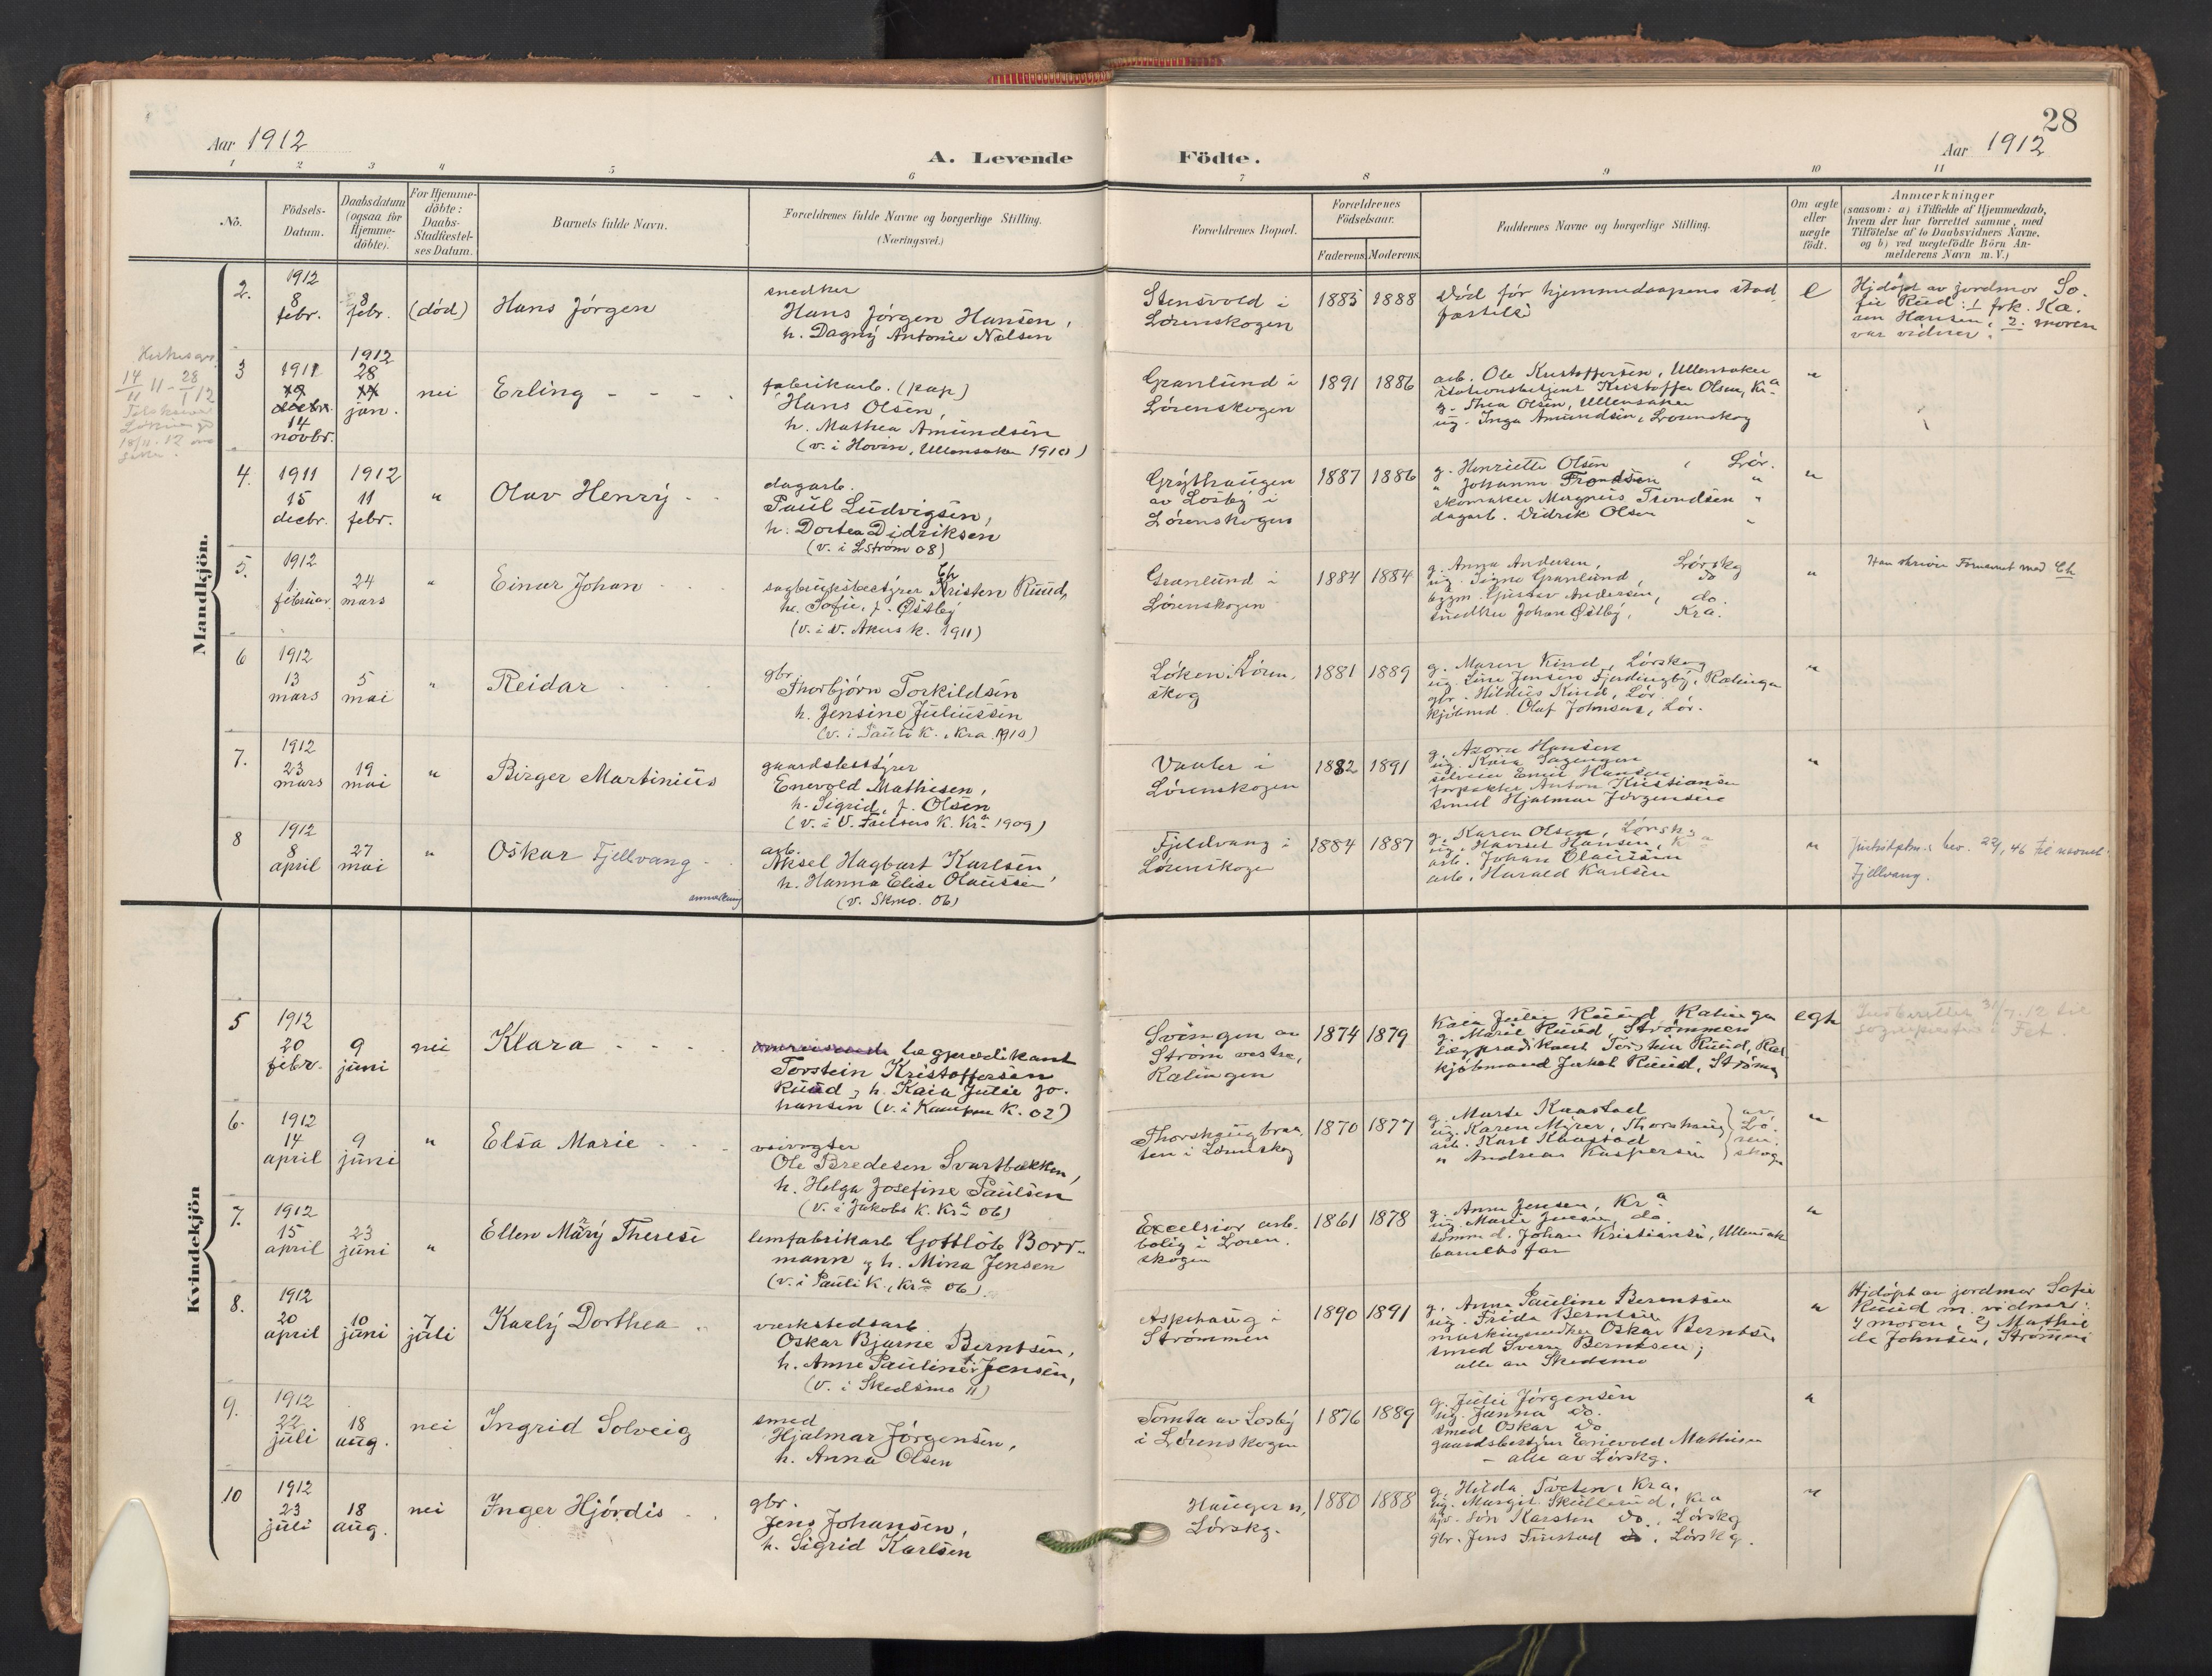 28
Aar 1912
A. Levende Födte.
Aar 1912
1 2 3 4 5 6 7 8 9 10 11
No.
Födsels-
Datum.
Daabsdatum
(ogsaa for
Hjemme-
döbte).
For Hjemme-
döbte:
Daabs-
Stadfæstel-
ses Datum.
Barnets fulde Navn.
Forældrenes fulde Navne og borgerlige Stilling.
(Næringsvei.)
Forældrenes Bopæl.
Forældrenes
Födselsaar.
Faderens. Moderens.
Faddernes Navne og borgerlige Stilling.
Om ægte
eller
uægte
födt.
Anmærkninger
(saasom: a) i Tilfælde af Hjemmedaab,
hvem der har forrettet samme, med
Tilföielse af to Daabsvidners Navne,
og b) ved uægtefödte Börn An-
melderens Navn m. V.)
Mandkjön.
2.
1912
8
febr.
8
febr.
(död)
Hans Jörgen
snedker
Hans Jörgen Hansen,
h. Dagny Antonie Nelsen
Stensvold i
Lørenskogen
1885 1888
Död før hjemmedaapens stad
fæstelse
e
Hjdöpt av jordmor So.
fie Ruud: 1 frk. Ka.
ren Hansen, 2. moren
var vidner.
3
1911
14
novbr.
1912
28
jan.
nei
Erling
fabrikarb. (pap)
Hans Olsen,
h. Mathea Amundsen
(v. i Hovin, Ullensaker 1910)
Granlund i
Lørenskogen
1891 1886
arb. Ole Kristoffersen, Ullensaker
stationsbetjent Kristoffer Olsen, Kra
g. Thea Olsen, Ullensaker
ug. Inga Amundsen, Lørenskog
"
4.
1911
15
decbr.
1912
11
febr.
"
Olav Henry
dagarb.
Paul Ludvigsen,
h. Dortea Didriksen
(v. i LStrøm 08)
Grythaugen
av Losby i
Lørenskogen
1887 1886
g. Henriette Olsen, Lør.
" Johanne Trondsen "
skomaker Magnus Trondsen "
dagarb. Didrik Olsen "
"
5.
1912
1.
februar
24
mars
"
Einar Johan
Ch
sagbrugsbestyrer Kristen Ruud,
h. Sofie, f. Østby
(v. i V. Akers k. 1911)
Granlund i
Lørenskogen
1884 1884
g. Anna Andersen, Lørskg
ug. Signe Granlund, do
bygm. Gustav Andersen, do.
snedker Johan Østby, Kra.
"
Han skriver Fornavnet med Ch
6
1912
13
mars
5
mai
"
Reidar
gbr.
Thorbjørn Torkildsen
h. Jensine Juliussen
(v. i Pauli K., Kra. 1910)
Løken i Løren.
skog
1881 1889
g. Maren Kind, Lørskog
ug. Line Jensen Fjerdingby, Rælingen
gbr. Hildus Kind, Lør.
kjöbmd. Olaf Johnsen, Lør.
"
7.
1912
23
mars
19
mai
"
Birger Martinius
gaardsbestyrer
Enevold Mathisen,
h. Sigrid, f. Olsen
(v. i V. Frelsers K. Kra 1909)
Vaaler i
Lørenskogen
1882 1891
Anton Kristiansen
smed Hjalmar Jørgensen
"
8
1912
8
april
27
mai
"
Oskar Fjellvang
anmerkning
arb.
Aksel Hagbart Karlsen,
h. Hanna Elise Olaussen
(v. Skmo. 06)
Fjeldvang i
Lørenskogen
1884 1887
g. Karen Olsen, Lørskg
arb. Johan Olaussen
arb. Harald Karlsen
"
bev. 22/1 46 til navnet
Fjellvang.
Kvindekjön
5
1912
20
febr.
9
juni
nei
Klara
lægprædikant
Torstein Kristoffersen
Ruud, h. Kaia Julie Jo.
hansen (v. i Kampen K. 02)
Svingen av
Strøm vestre,
Rælingen
1874 1879
Kaia Julie Ruud Rælingen
g. Marie Ruud, Strømmen
lægprædikant Torstein Ruud, Ræl.
kjöbmand Jakob Ruud, Strømm.
egte
Indberettet 31/7. 12 til
sogneprest i Fet
6.
1912
14
april
9
juni
"
Elsa Marie
veivogter
Ole Bredesen Svartbækken,
h. Helga Josefine Paulsen
(v. i Jakobs K. Kra 06)
Thorshaugbraa
ten i Lørenskog
1870 1877
g. Marte Knastad
ug. Karen Myrer, Thorshaug
arb. Karl Knastad
" Andreas Kaspersen
av
Lø.
ren.
skogen
"
7.
1912
15
april
23
juni
"
Ellen Mary Therese
limfabrikarb Gottlob Borr-
mann og h. Mina Jensen
(v. i Pauli K., Kra 06).
Excelsior arb.
bolig i Løren.
skogen
1861 1878
g. Anna Jensen, Kra
ug. Marie Jensen, do.
tømm d. Johan Kristiansen, Ullensak
barnets far
"
8.
1912
20
april
10
juni
7
juli
Karly Dorthea
verkstedsarb
Oskar Bjarne Berntsen,
h. Anne Pauline Jensen,
(v. i Skedsmo 11)
Aspehaug i
Strømmen
1890 1891
g. Anna Pauline Berentsen
ug. Frida Berntsen
maskinsnedker Oskar Berntsen
smed Sverre Berntsen;
alle av Skedsmo
"
Hjdöpt av jordmor Sofie
Ruud m. vidner:
1) moren, 2) Mathil
de Johnsen, Strømmen
9.
1912
22
juli
18
aug.
nei
Ingrid Solveig
smed
Hjalmar Jørgensen,
h. Anna Olsen
Tomta av Losby
i Lørenskogen
1876 1889
g. Julie Jørgensen
ug. Janna do.
smed Oskar do.
gaardsbestyrer Enevold Mathisen
- alle av Lørskg.
"
10
1912
23
juli
18
aug.
nei
Inger Hjördis
gbr.
Jens Johansen,
h. Sigrid Karlsen
Hauger n,
Lørskg.
1880 1888
g. Hilda Tveten, Kra.
ug. Margit Skullerud, Kra
Karsten do., Lørskg
gbr. Jens Finstad, Lørskg.
"